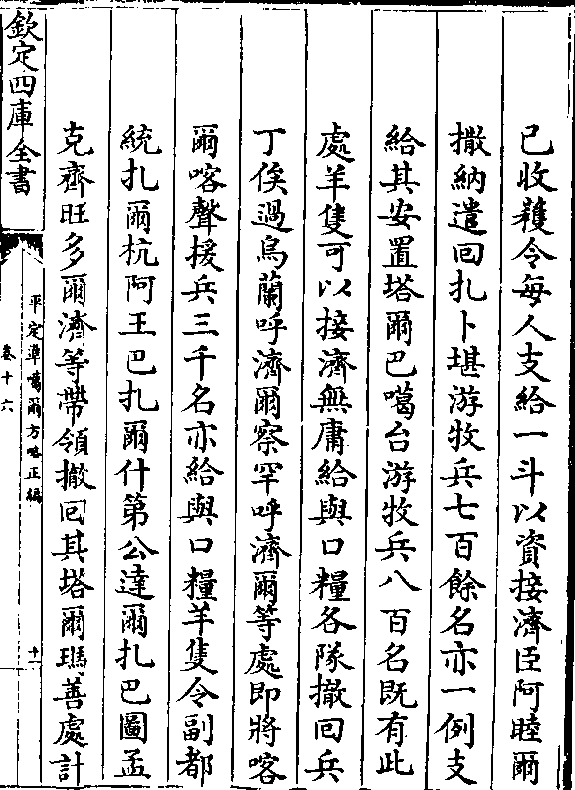 已收穫令每人支給一斗以資接濟臣阿睦爾
撒納遣回扎卜堪游牧兵七百餘名亦一例支
給其安置塔爾巴噶台游牧兵八百名既有此
處羊隻可以接濟無庸給與口糧各隊撤回兵
丁俟過烏蘭呼濟爾察罕呼濟爾等處即將喀
爾喀聲援兵三千名亦給與口糧羊隻令副都
統扎爾杭阿王巴扎爾什第公達爾扎巴圖孟
克齊旺多爾濟等帶領撤回其塔爾瑪善處計
欽定四庫全書
平定準噶爾方略正編
卷十六
十一